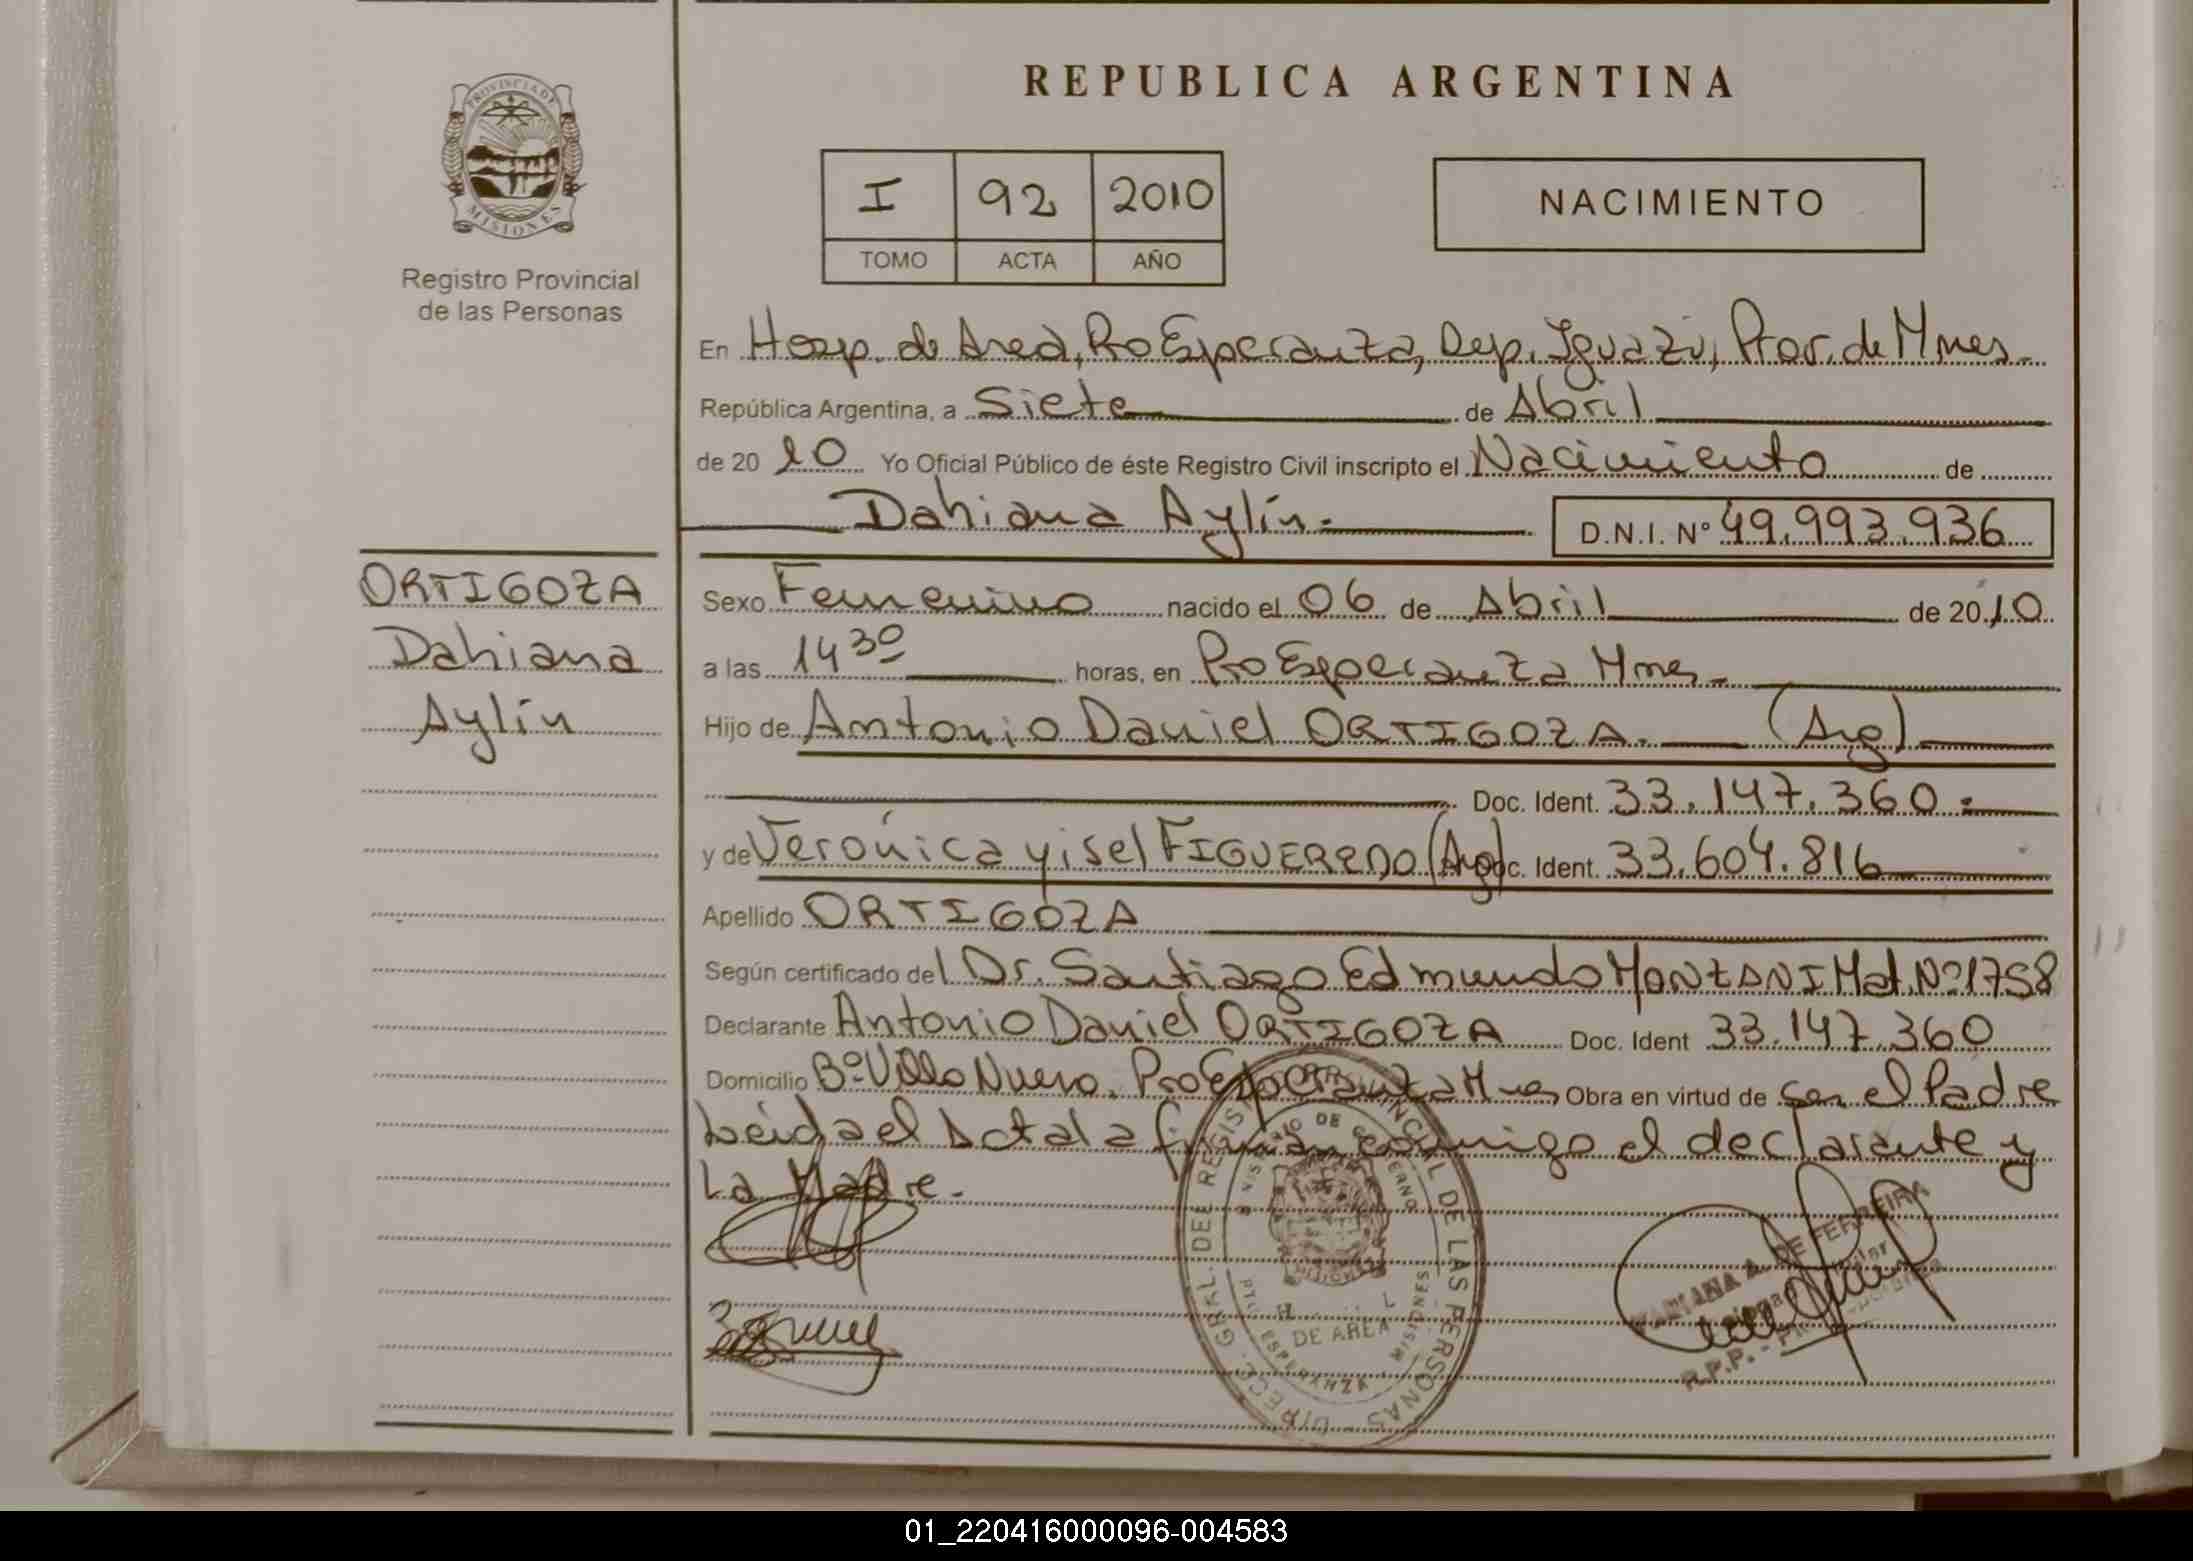 PROVINCIA DE
MISIONES
Registro Provincial
de las Personas
REPUBLICA ARGENTINA
I 92 2010
TOMO ACTA AÑO
NACIMIENTO
En Hosp. de Area, Pto Esperanza, Dep. Iguazú, Prov. de Mnes.
República Argentina, a Siete de Abril
de 2010 Yo Oficial Público de éste Registro Civil inscripto el Nacimiento de
Dahiana Aylín.- D.N.I. Nº 49.993.936
ORTIGOZA
Dahiana
Aylín
Sexo Femenino nacido el 06 de Abril de 2010
a las 14 30 horas, en Pto Esperanza Mnes.
Hijo de Antonio Daniel ORTIGOZA. (Arg)
Doc. Ident. 33.147.360.-
y de Verónica yisel FIGUEREDO (Arg) Doc. Ident. 33.604.816
Apellido ORTIGOZA
Según certificado del Dr. Santiago Edmundo MONZANI Mat. Nº 1758
Declarante Antonio Daniel ORTIGOZA Doc. Ident 33.147.360
Domicilio Bº Villa Nueva, Pto Esperanza Mnes Obra en virtud de ser el Padre
Leída el Acta la firman conmigo el declarante y
La Madre.-
DIRECC. GRAL. DEL REGISTRO PROVINCIAL DE LAS PERSONAS
MINISTERIO DE GOBIERNO
DE AREA
PTO. ESPERANZA - MISIONES
MARIANA A. DE FERREIRA
R.P.P. -
01_220416000096-004583